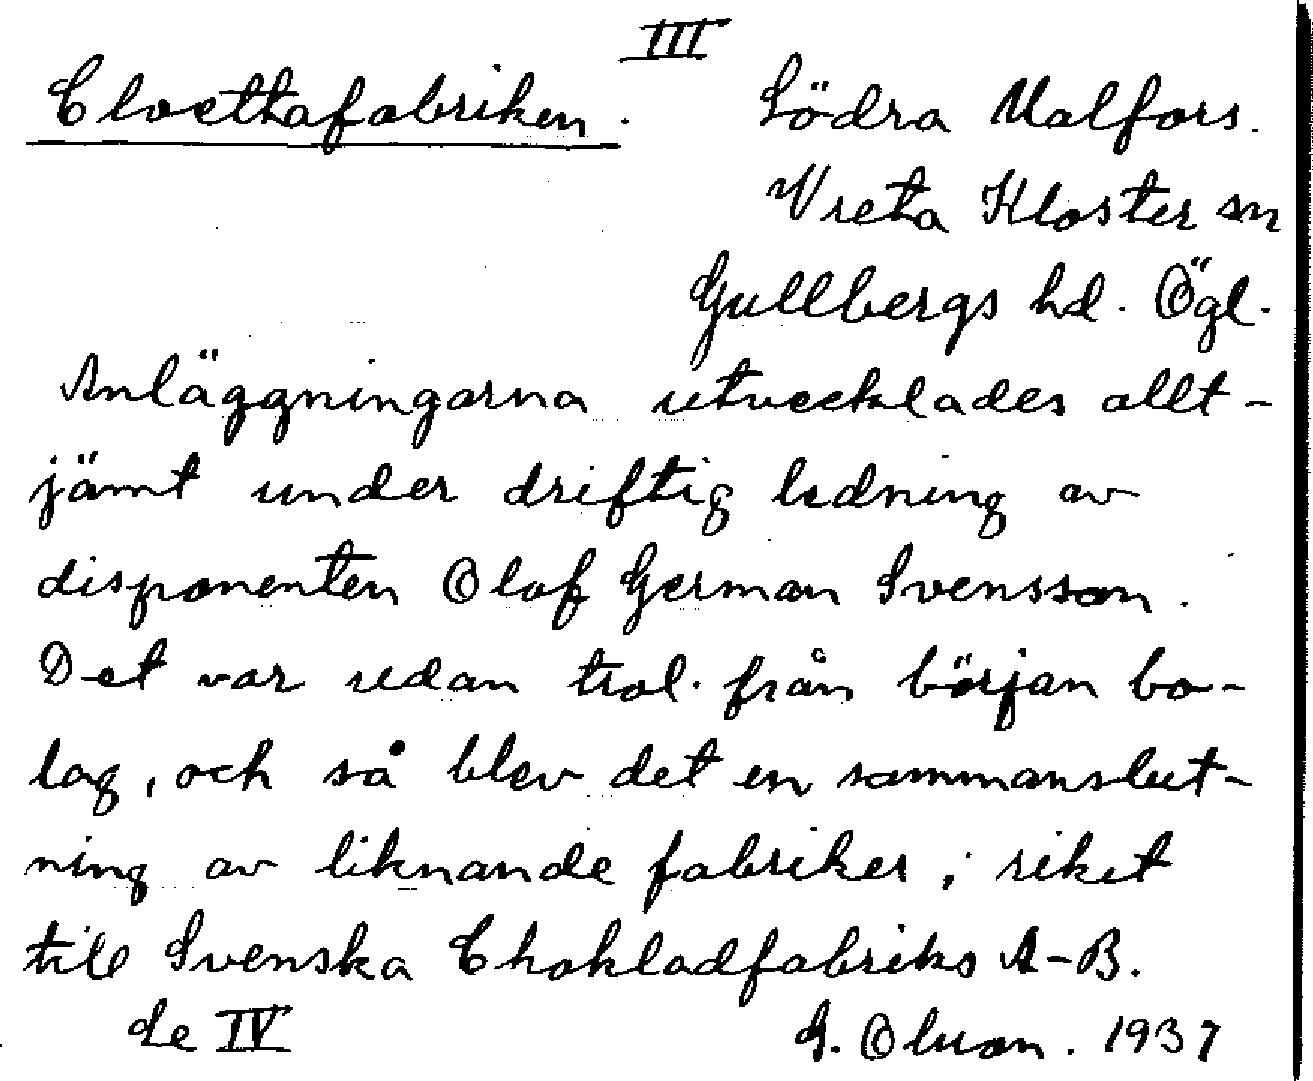 III
Cloettafabriken. Södra Malfors.
Vreta Kloster sn
Gullbergs hd. Ögl.
Anläggningarna utvecklades allt-
jämt under driftig ledning av
disponenten Olof German Svensson.
Det var redan trol. från början bo-
lag, och så blev det en sammanslut-
ning av liknande fabriker i riket
till Svenska Chokladfabriks A-B.
Se IV G. Olsson. 1937